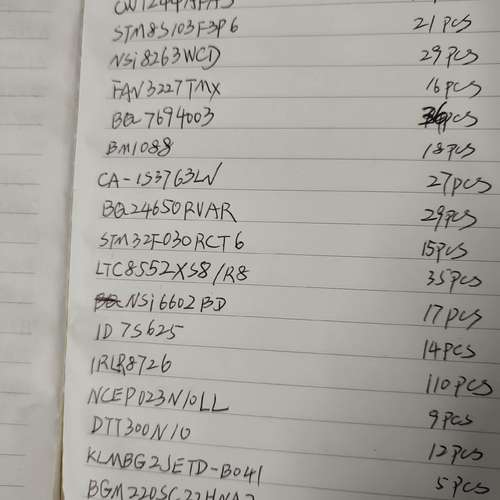 STM8S103F3P6 21pcs
NSi8263WCD 29pcs
FAN3227TMX 16pcs
BQ7694003 pcs
BM1088 18pcs
CA-IS3763LN 27pcs
BQ24650RVAR 29pcs
STM32F030RCT6 15pcs
LTC8552XS8/R8 35pcs
NSi6602BD 17pcs
ID7S625 14pcs
IRLR8726 110pcs
NCEP023N10LL 9pcs
DTT300N10 12pcs
KLMBG2JETD-B041 5pcs